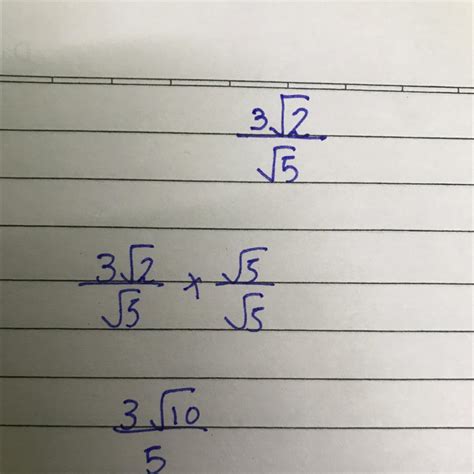 3√2/√5
3√2/√5 × √5/√5
3√10/5